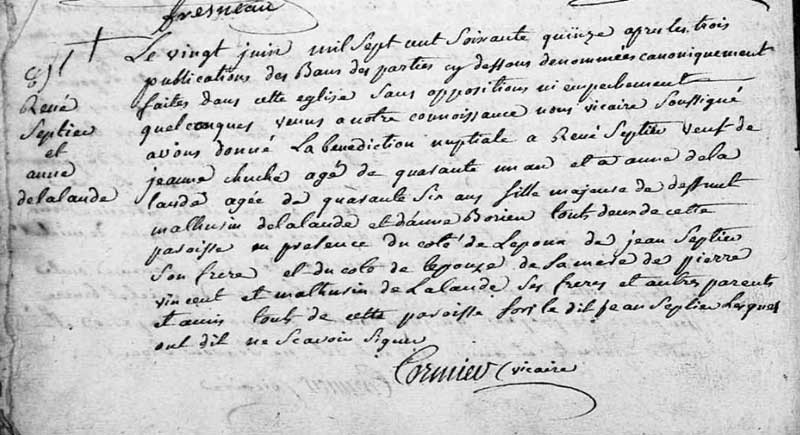 fresneau
8)
René
Septier
et
anne
delalande
Le vingt juin mil Sept cent Soixante quinze apres les trois
publications des Bans des parties cy dessous denommées canoniquement
faites dans cette eglise Sans oppositions ni empechement
quelconques venus a notre connoissance nous vicaire Soussigné
avons donné La benediction nuptiale a René Septier veuf de
jeanne agé de quarante un an et a anne dela
lande agée de quarante Six ans fille majeure de deffunt
mathusin delalande et danne touts deux de cette
paroisse en presence du coté de Lepoux de jean Septier
Son frere et du coté de lepouxe de Sa mere de pierre
vincent et mathusin de Lalande Ses freres et autres parents
et amis touts de cette paroisse fors le dit jean Septier Lesquels
ont dit ne Scavoir Signer
Cormier vicaire